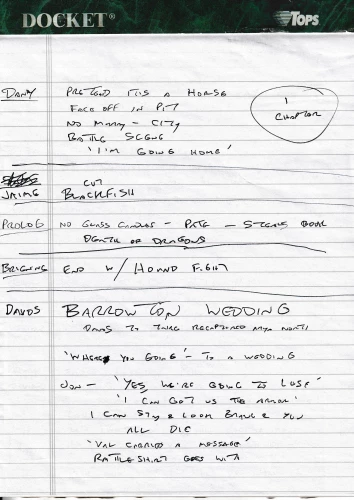 DOCKET® TOPS
DANY PRETEND IT IS A HORSE
FACE OFF IN PIT
NO MARRY - CITY
BATTLE SCENE
'I'M GOING HOME'
1
CHAPTER
CUT
JAIME BLACKFISH
PROLOG NO GLASS CANDLES - PATE - STEALS BOOK
DEATH OF DRAGONS
BRIENNE END W/ HOUND FIGHT
DAVOS BARROWTON WEDDING
DAVOS TO NORTH
'WHERE YOU GOING' - TO A WEDDING
JON - 'YES, WE'RE GOING TO LOSE'
'I CAN GET US THE ARMOR'
I CAN STAY & LOOK BRAVE & YOU
ALL DIE
'VAL CARRIES A MESSAGE'
RATTLESHIRT GOES WITH